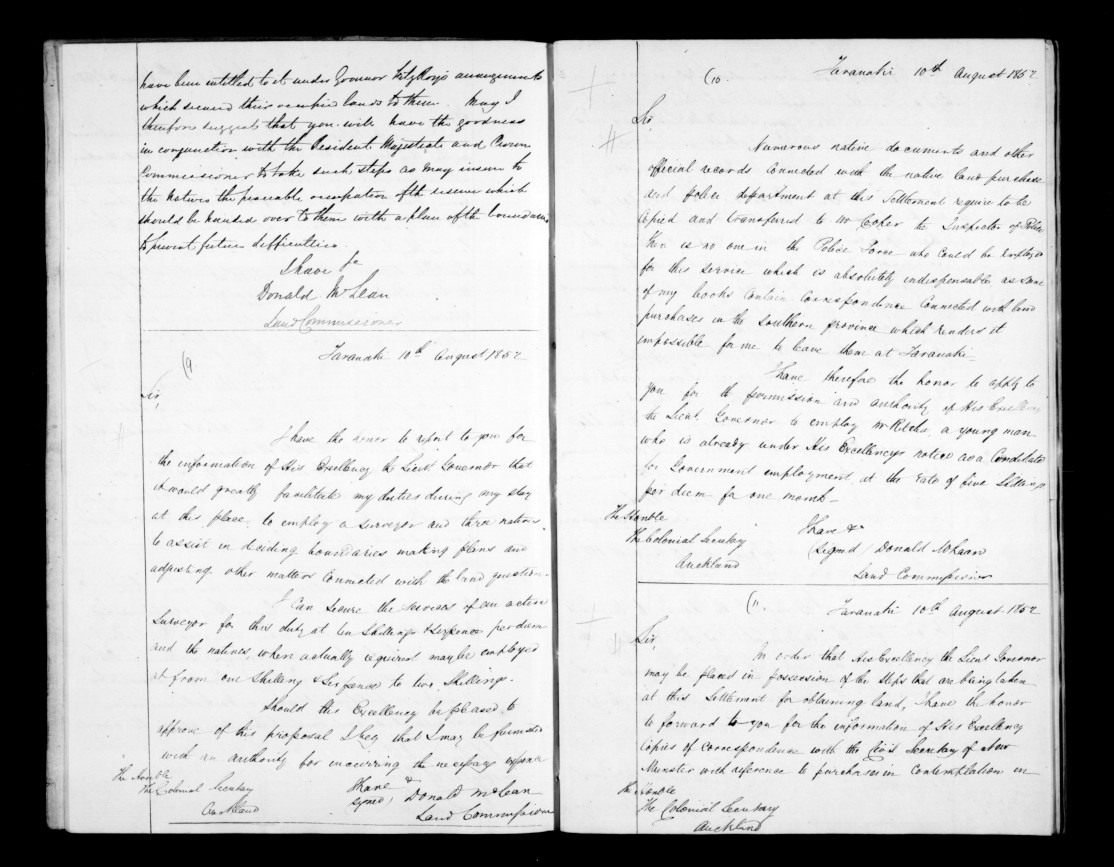 have been entitled to it under Governor FitzRoy's arrangements
which secured their occupied lands to them. May I
therefore suggest that you will have the goodness
in conjunction with the Resident Magistrate and Crown
Commissioner to take such steps as may insure to
the natives the peaceable occupation of the reserve which
should be handed over to them with a plan of the boundaries
to prevent future difficulties.
I have &c
Donald McLean
Land Commissioner
(9
Taranaki 10th August 1852
Sir,
I have the honor to report to you for
the information of His Excellency the Lieut Governor that
it would greatly facilitate my duties during my stay
at this place, to employ a surveyor and three natives
to assist in deciding boundaries making plans and
adjusting other matters connected with the land question.
I can secure the services of an active
Surveyor for this duty at ten Shillings & Sixpence per diem
and the natives, when actually required may be employed
at from one Shilling & Sixpence to two Shillings.
Should His Excellency be pleased to
approve of this proposal I beg that I may be furnished
with an authority for incurring the necessary expense
The Honble
The Colonial Secretary
Auckland
I have &
signed, Donald McLean
Land Commissioner
(10
Taranaki 10th August 1852
Sir,
Numerous native documents and other
official records connected with the native land purchase
and police department at this Settlement require to be
copied and transferred to Mr Cooper the Inspector of Police
there is no one in the Police Force who could be employed
for this service which is absolutely indispensable as some
of my books contain correspondence connected with land
purchases in the Southern province which renders it
impossible for me to leave them at Taranaki
I have therefore the honor to apply to
you for the permission and authority of His Excellency
the Lieut. Governor to employ Mr a young man
who is already under His Excellencys notice as a Candidate
for Government employment at the rate of five Shillings
per diem for one month
The Honble
The Colonial Secretary
Auckland
I have &c
(Signed) Donald McLean
Land Commissioner
(11.
Taranaki 10th August 1852
Sir,
In order that His Excellency the Lieut Governor
may be placed in possession of the steps that are being taken
at this Settlement for obtaining land, I have the honor
to forward to you for the information of His Excellency
copies of correspondence with the Civil Secretary of New
Munster with reference to purchases in contemplation in
The Honble
The Colonial Secretary
Auckland